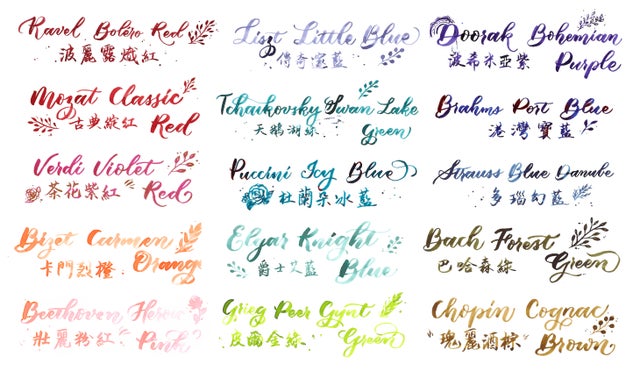 Ravel Boléro Red
波麗露熾紅
Liszt Little Blue
傳奇 藍
Dvorak Bohemian
波希米亞紫 Purple
Mozat Classic
古典 紅 Red
Tchaikovsky Swan Lake
天鵝湖綠 Green
Brahms Port Blue
港灣寶藍
Verdi Violet
茶花紫紅 Red
Puccini Icy Blue
杜蘭朵冰藍
Strauss Blue Danube
多瑙幻藍
Bizet Carmen
卡門烈橙 Orange
Elgar Knight
爵士 藍 Blue
Bach Forest
巴哈森綠 Green
Beethoven Heroic
壯麗粉紅 Pink
Grieg Peer Gynt
皮爾金綠 Green
Chopin Cognac
瑰麗酒棕 Brown